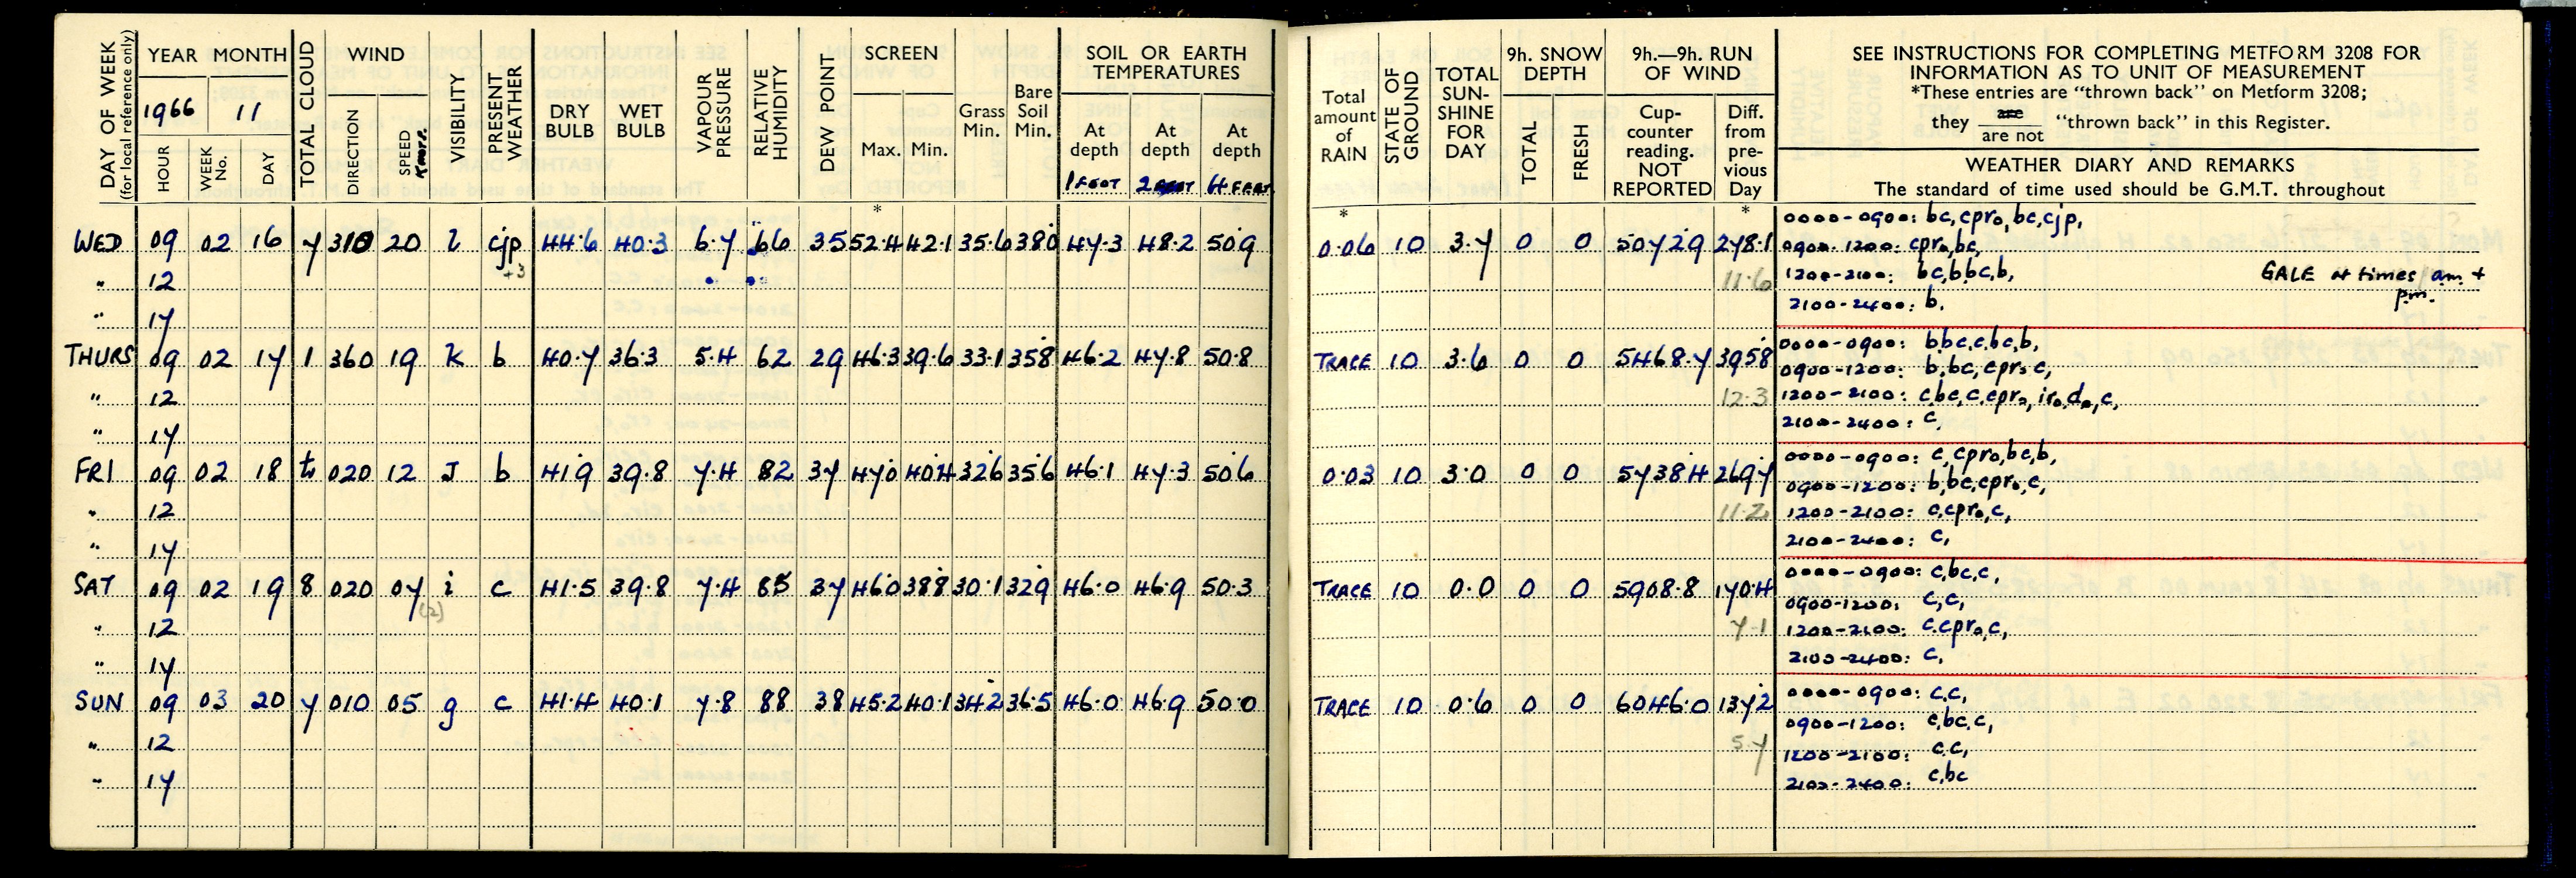 DAY OF WEEK
(for local reference only)
YEAR MONTH
1966 11
HOUR
WEEK No.
DAY
TOTAL CLOUD
WIND
DIRECTION
SPEED
Knots.
VISIBILITY
PRESENT WEATHER
DRY BULB
WET BULB
VAPOUR PRESSURE
RELATIVE HUMIDITY
DEW POINT
SCREEN
Max. Min.
*
Grass Min.
Bare Soil Min.
SOIL OR EARTH
TEMPERATURES
At depth At depth At depth
1 FOOT 2 FEET 4 FEET
WED 09 02 16 7 310 20 l cjp 44.6 40.3 6.7 66 35 52.4 42.1 35.6 38.0 47.3 48.2 50.9
" 12 +3
" 17
THURS 09 02 17 1 360 19 K b 40.7 36.3 5.4 62 29 46.3 39.6 33.1 35.8 46.2 47.8 50.8
" 12
" 17
FRI 09 02 18 tr 020 12 J b 41.9 39.8 7.4 82 37 47.0 40.4 32.6 35.6 46.1 47.3 50.6
" 12
" 17
SAT 09 02 19 8 020 07 i c 41.5 39.8 7.4 85 37 46.0 38.8 30.1 32.9 46.0 46.9 50.3
" 12 (2)
" 17
SUN 09 03 20 7 010 05 g c 41.4 40.1 7.8 88 38 45.2 40.1 34.2 36.5 46.0 46.9 50.0
" 12
" 17
Total amount of RAIN
*
STATE OF GROUND
TOTAL SUN-SHINE FOR DAY
9h. SNOW
DEPTH
TOTAL
FRESH
9h.—9h. RUN
OF WIND
Cup-counter reading. NOT REPORTED
Diff. from pre-vious Day
*
SEE INSTRUCTIONS FOR COMPLETING METFORM 3208 FOR
INFORMATION AS TO UNIT OF MEASUREMENT
*These entries are "thrown back" on Metform 3208;
they are / are not "thrown back" in this Register.
WEATHER DIARY AND REMARKS
The standard of time used should be G.M.T. throughout
0.06 10 3.7 0 0 5072.9 278.1
11.6
0000-0900: bc,cpr₀,bc,cjp,
0900-1200: cpr₀,bc,
1200-2100: bc,bbc,b, GALE at times am +
pm.
2100-2400: b.
TRACE 10 3.6 0 0 5468.7 395.8
12.3
0000-0900: b,bc,c,bc,b,
0900-1200: b,bc,cpr₀c,
1200-2100: c,bc,c,cpr₀,ir₀d₀,c,
2100-2400: c,
0.03 10 3.0 0 0 5738.4 269.7
11.2
0000-0900: c,cpr₀,bc,b,
0900-1200: b,bc,cpr₀,c,
1200-2100: c,cpr₀,c,
2100-2400: c,
TRACE 10 0.0 0 0 5908.8 170.4
7.1
0000-0900: c,bc,c,
0900-1200: c,c,
1200-2100: c,cpr₀,c,
2100-2400: c,
TRACE 10 0.6 0 0 6046.0 137.2
5.7
0000-0900: c,c,
0900-1200: c,bc,c,
1200-2100: c,c,
2100-2400: c,bc